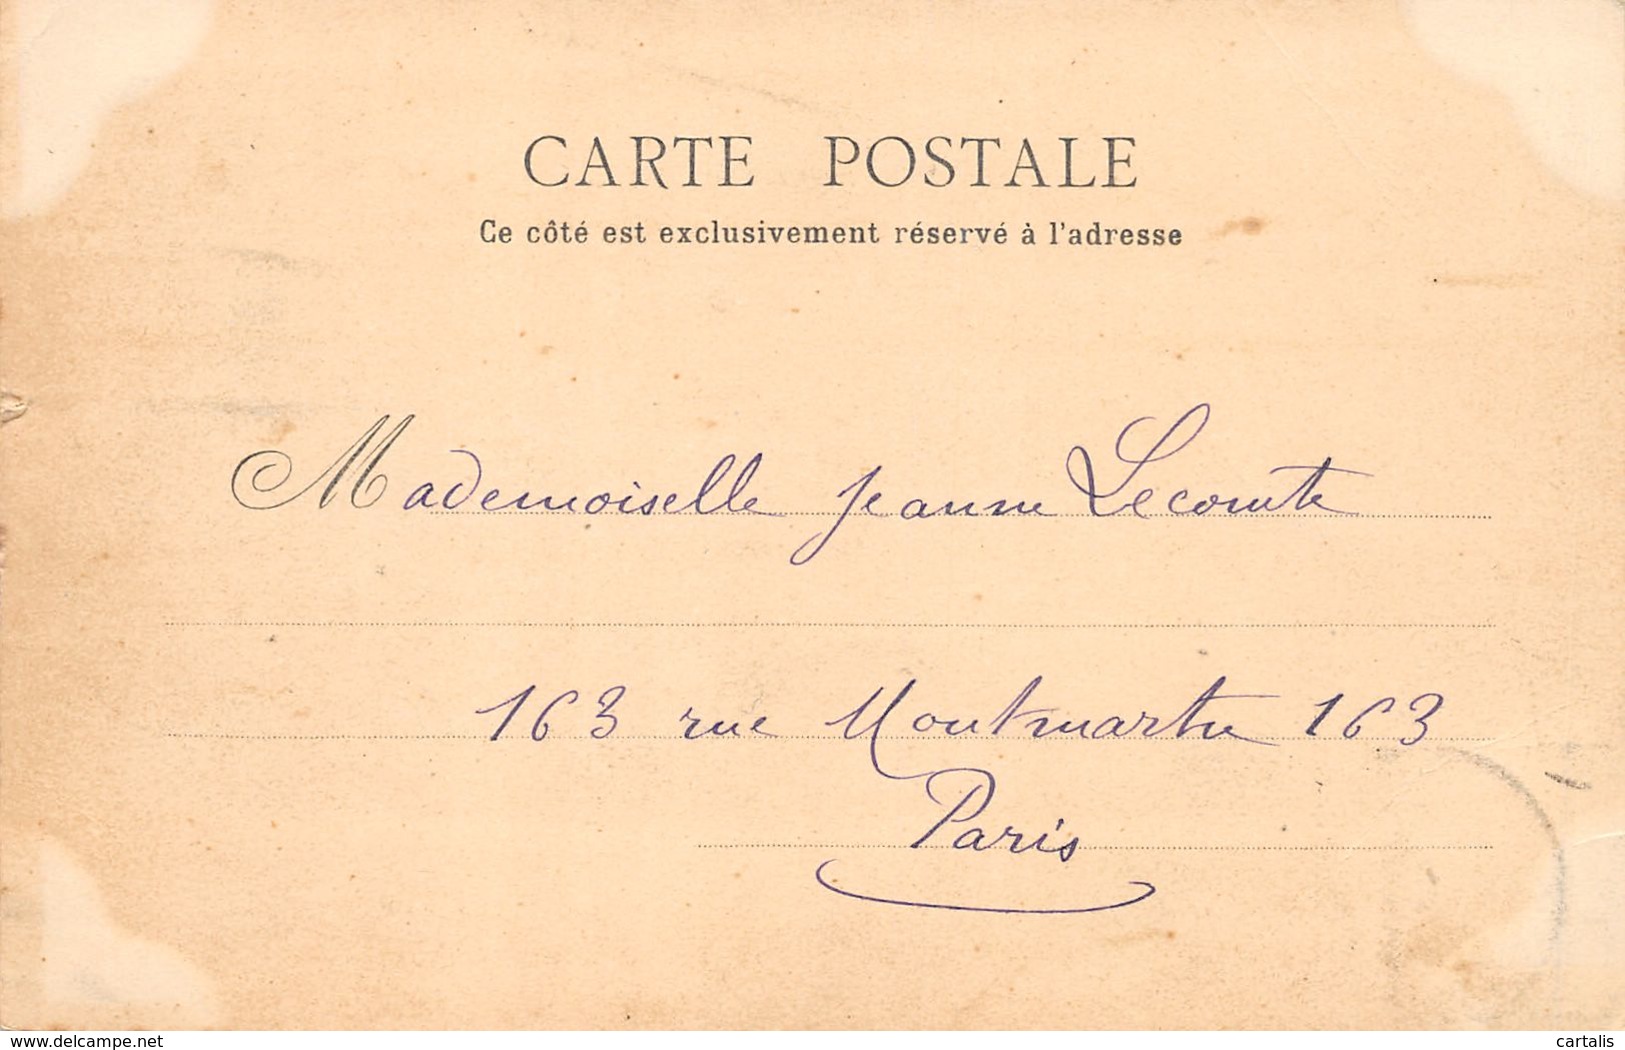 CARTE POSTALE
Ce côté est exclusivement réservé à l'adresse
Mademoiselle Jeanne Lecomte
163 rue Montmartre 163
Paris
delcampe.net
cartalis